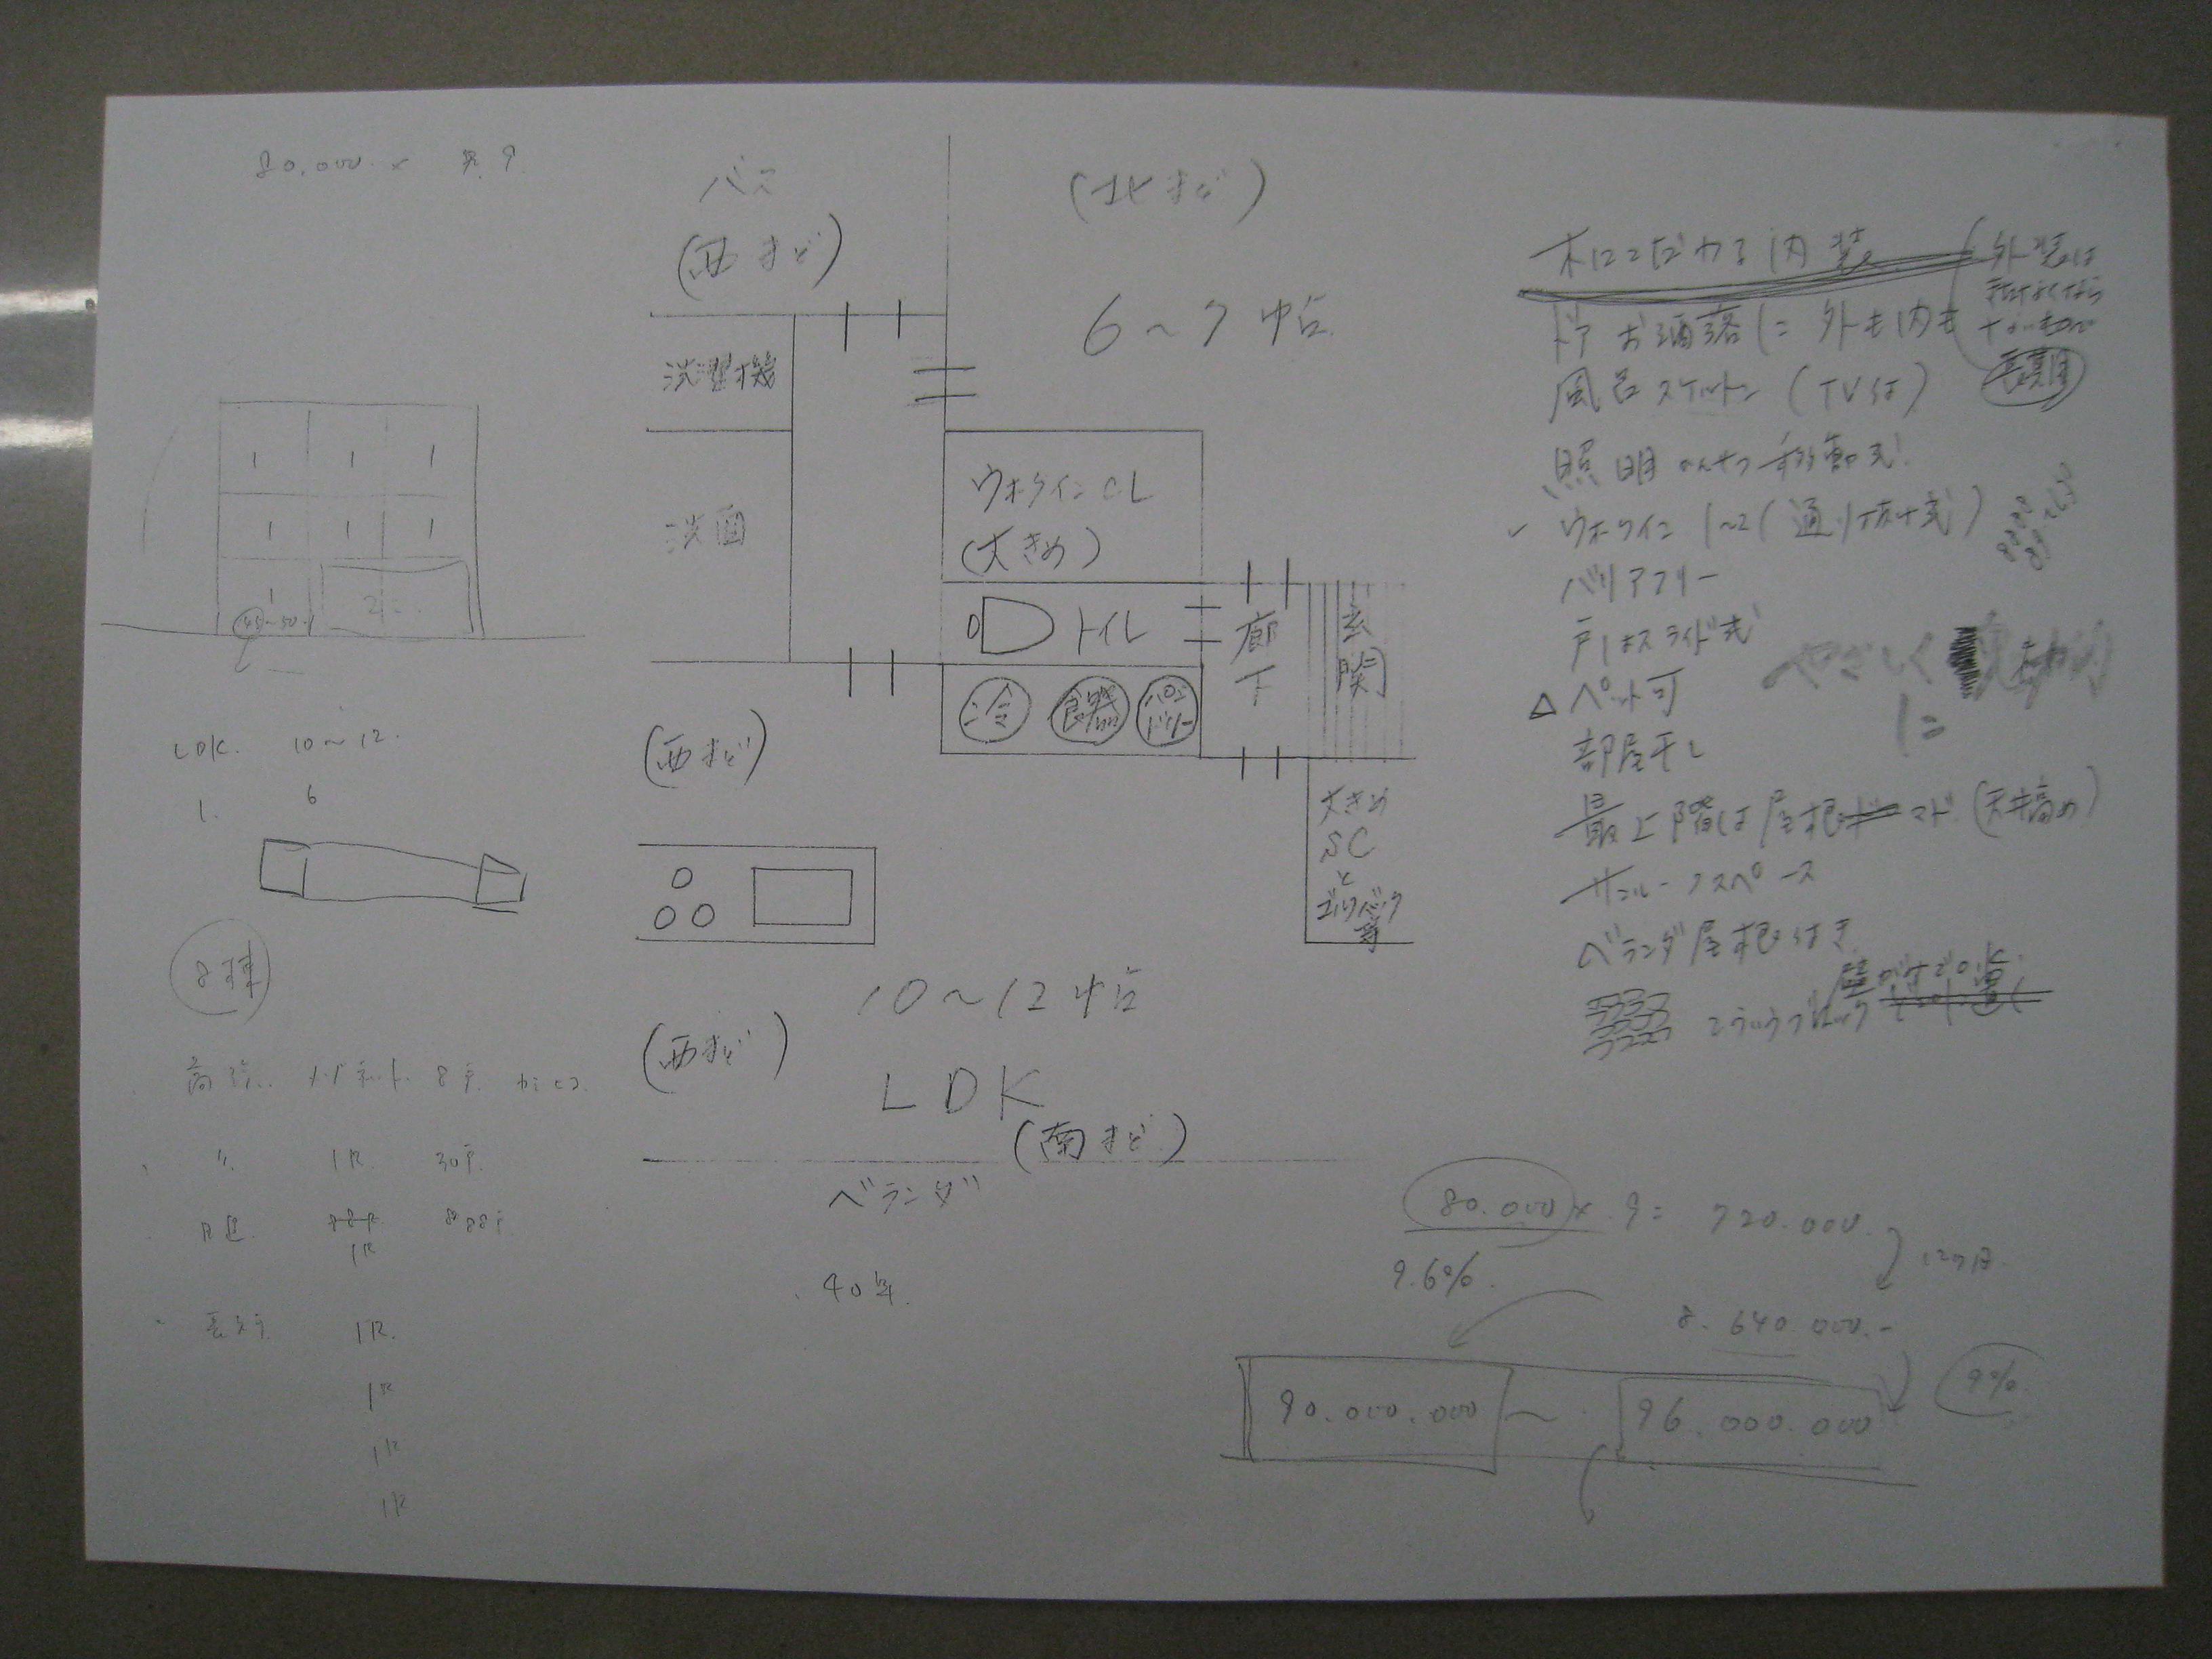 80,000 ×
1 1 1
1 1 1
1
45~50
LDK. 10~12.
1. 6
8棟
メゾネット 8戸
〃 1R 30戸
1R
1R.
1R
1R
1R
バス
(西まど)
(北まど)
6~7帖
洗濯機
洗面
ウォークインCL
(大きめ)
トイレ
廊下
玄関
冷
食器
パントリー
(西まど)
大きめ
SC
と
ゴルフバック
等
10~12帖
(西まど)
LDK
(南まど)
ベランダ
40年.
木にこだわる内装
外装は
ドア お洒落に 外も内も
風呂スケルトン (TV付)
照明 かんたつ移動式
ウォークイン 1~2 (通り抜け式)
バリアフリー
戸はスライド式
△ペット可
部屋干し
やさしく
に
最上階は屋根 マド (天井高め)
サンルームスペース
ベランダ屋根付き
こういうブロック
80.000 × 9 = 720.000.
9.6%.
12ヶ月.
8.640.000.-
90.000.000 ~ 96.000.000
9%